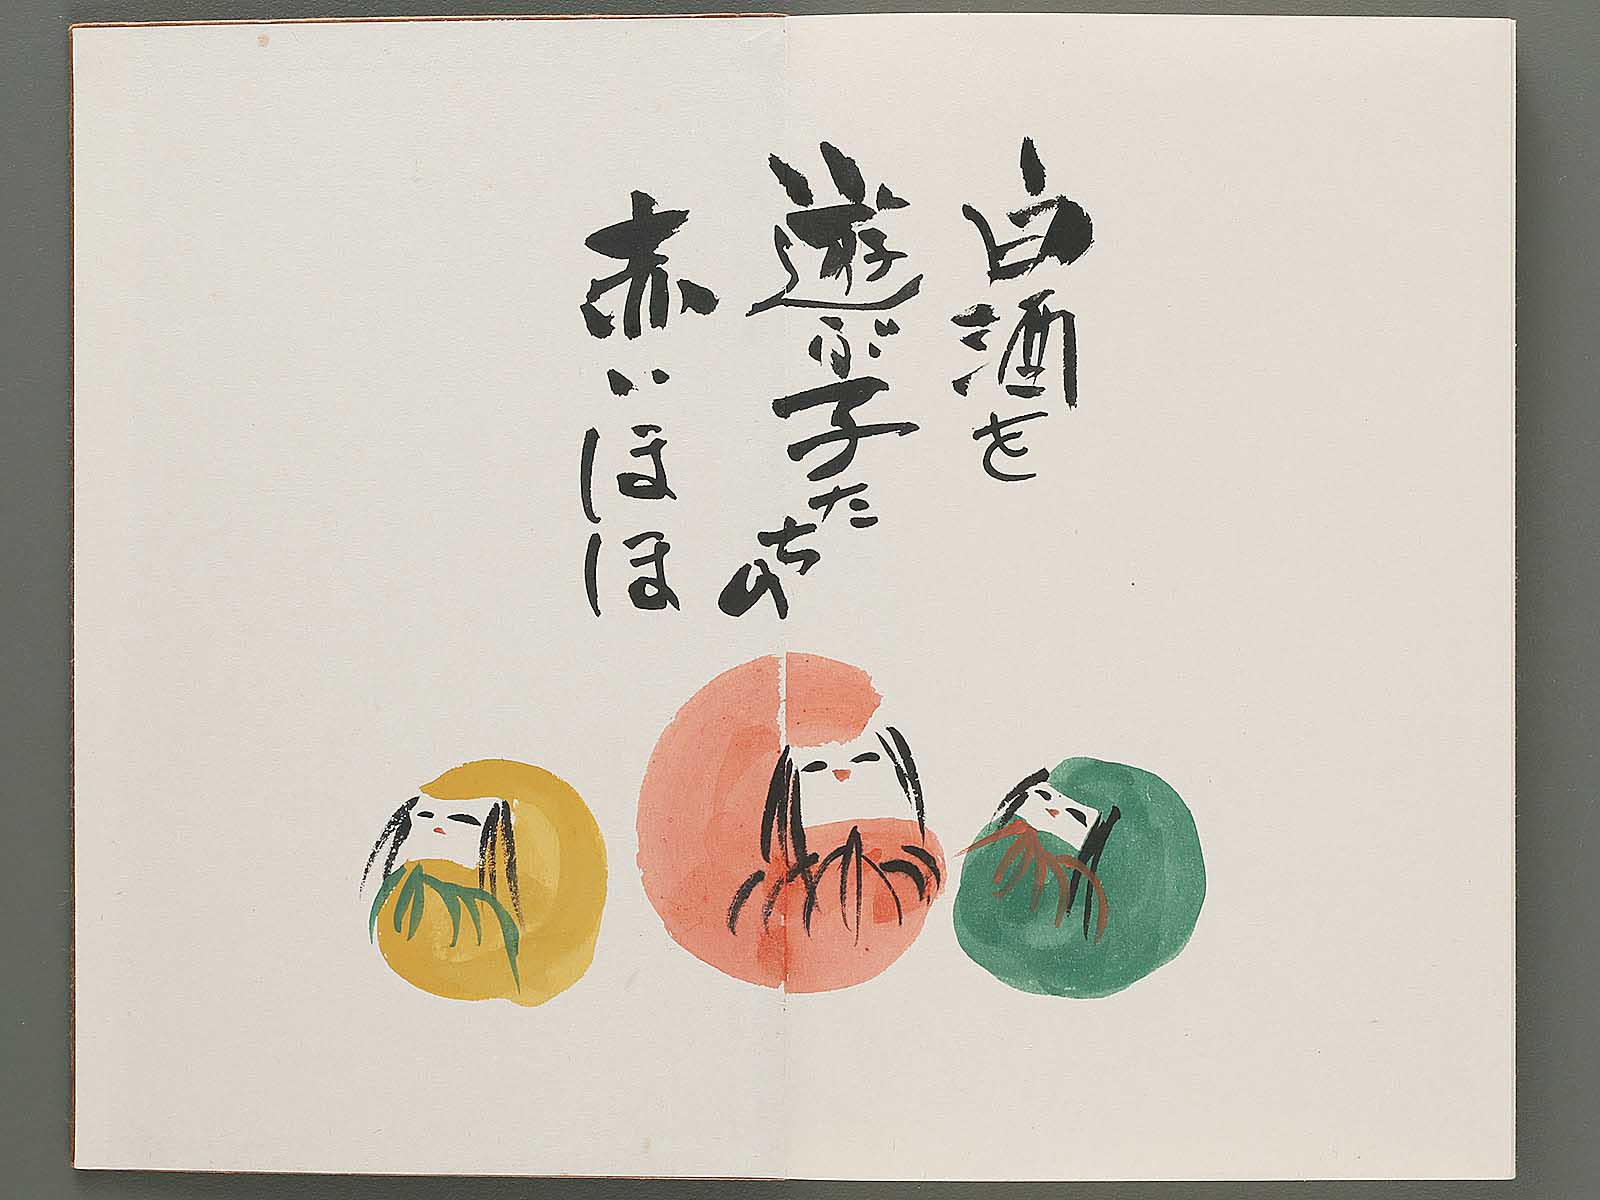 白酒を
遊ぶ子たちの
赤いほほ